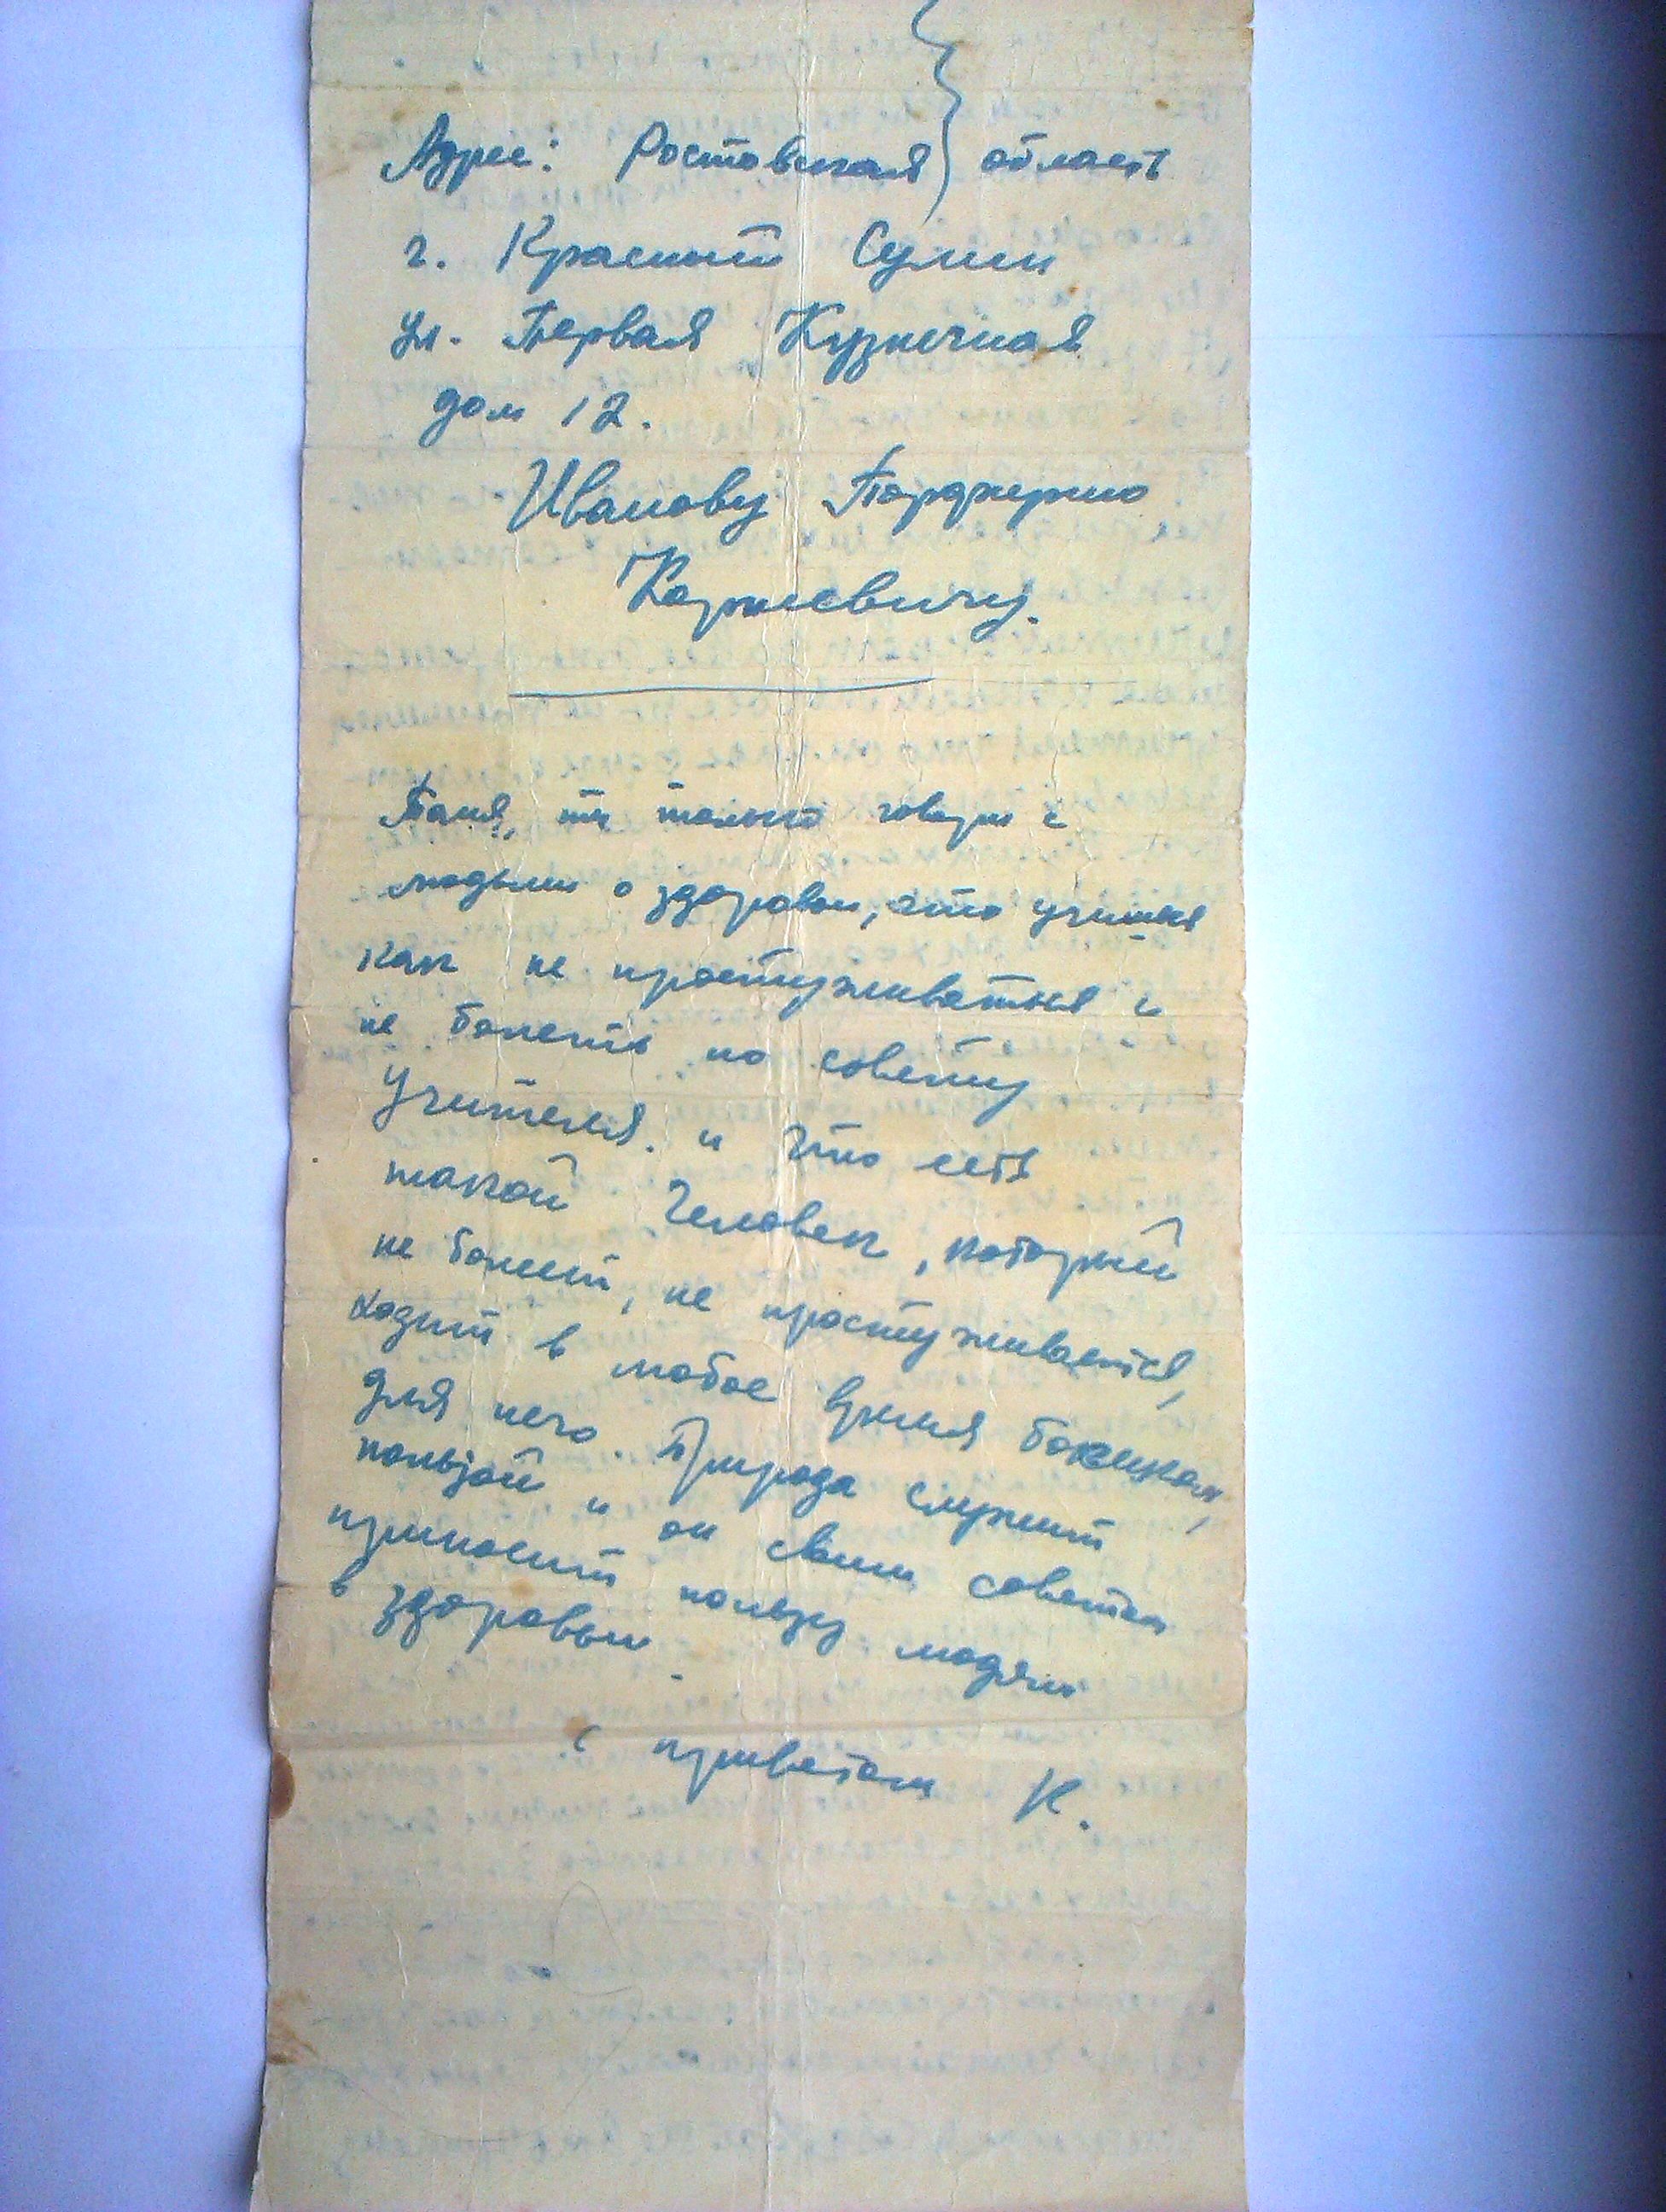 Адрес: Ростовская область
г. Красный Сулин
ул. Первая Кузнечная
дом 12.
Иванову Порфирию
Корнеевичу.
Паня, ты только говори с
людьми о здоровьи, что учишься
как не простуживаться и
не болеть по совету
Учителя. и что есть
такой Человек, который
не болеет, не простуживается,
ходит в любое время босиком,
для него Природа служит
пользой и он своим советом
приносит пользу людям
в здоровьи.
С приветом К.